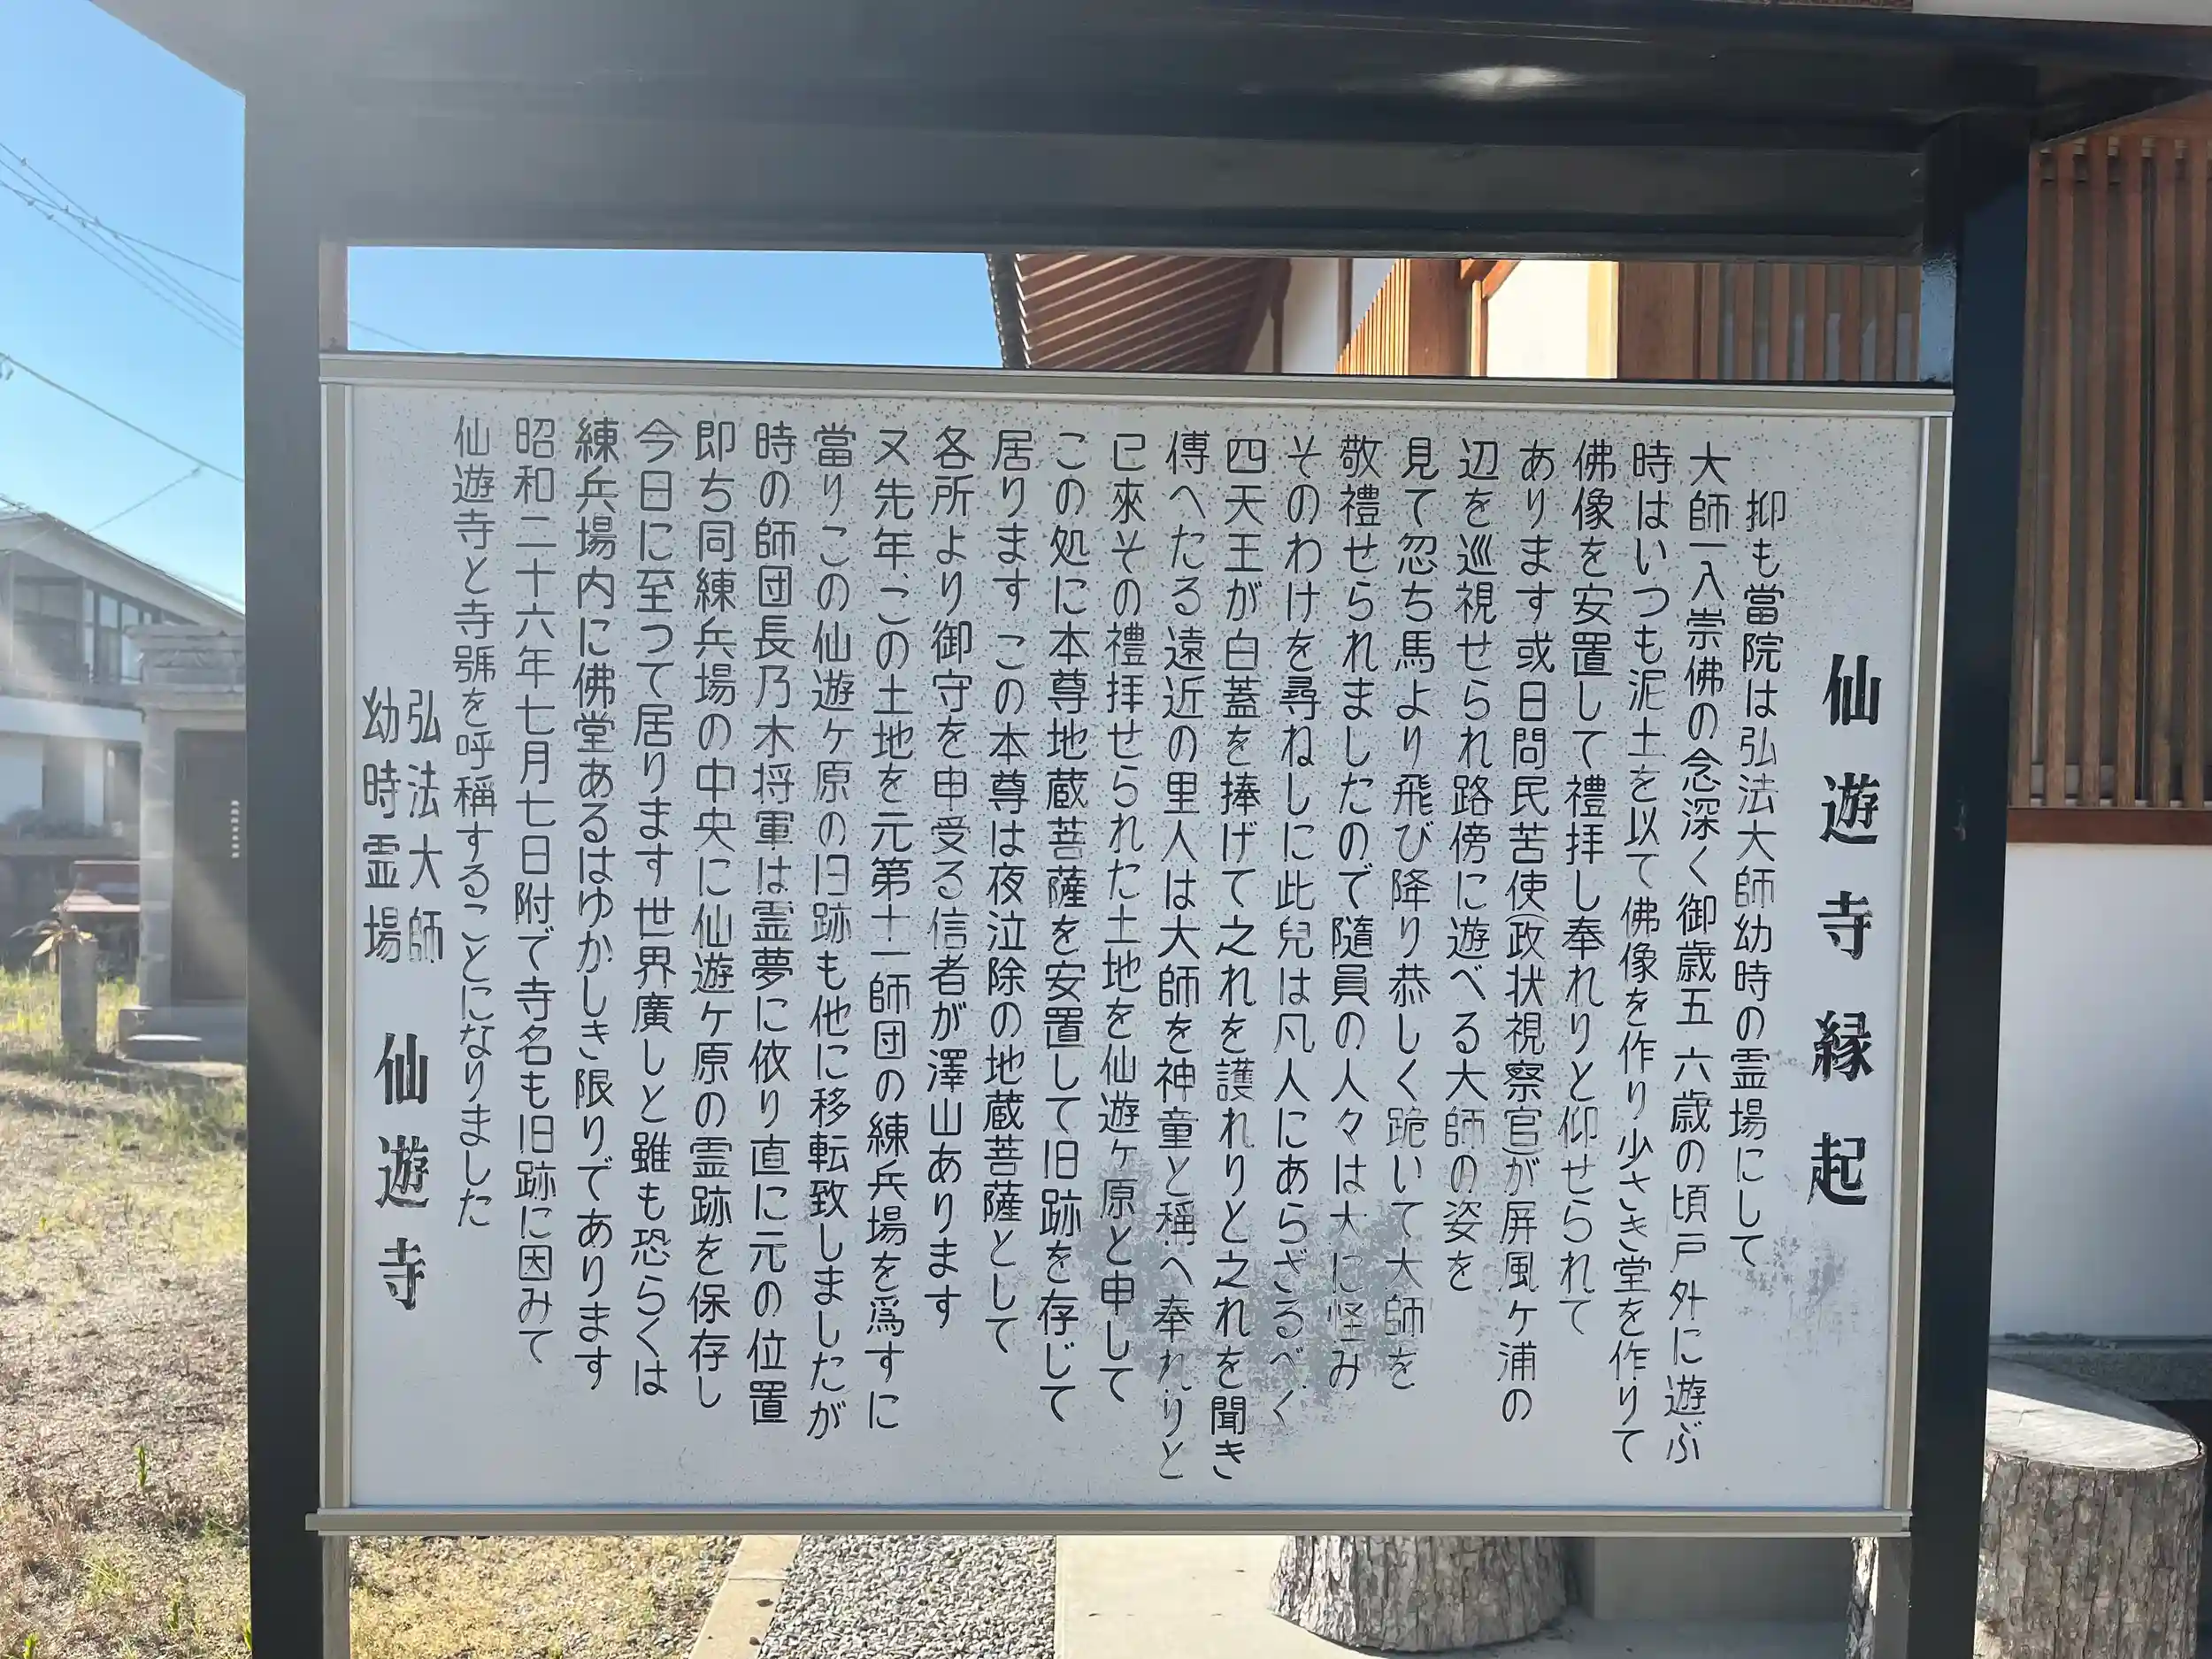 仙遊寺縁起
抑も當院は弘法大師幼時の霊場にして
大師一入崇佛の念深く御歳五六歳の頃戸外に遊ぶ
時はいつも泥土を以て佛像を作り少さき堂を作りて
佛像を安置して禮拝し奉れりと仰せられて
あります或日問民苦使(政状視察官)が屏風ヶ浦の
辺を巡視せられ路傍に遊べる大師の姿を
見て忽ち馬より飛び降り恭しく跪いて大師を
敬禮せられましたので隨員の人々は大に怪み
そのわけを尋ねしに此兒は凡人にあらざるべく
四天王が白蓋を捧げて之れを護れりと之れを聞き
傳へたる遠近の里人は大師を神童と稱へ奉れりと
已來その禮拝せられた土地を仙遊ヶ原と申して
この処に本尊地蔵菩薩を安置して旧跡を存じて
居ります この本尊は夜泣除の地蔵菩薩として
各所より御守を申受る信者が澤山あります
又先年、この土地を元第十一師団の練兵場を爲すに
當りこの仙遊ヶ原の旧跡も他に移転致しましたが
時の師団長乃木将軍は霊夢に依り直に元の位置
即ち同練兵場の中央に仙遊ヶ原の霊跡を保存し
今日に至つて居ります世界廣しと雖も恐らくは
練兵場内に佛堂あるはゆかしき限りであります
昭和二十六年七月七日附で寺名も旧跡に因みて
仙遊寺と寺號を呼稱することになりました
弘法大師
幼時霊場
仙遊寺